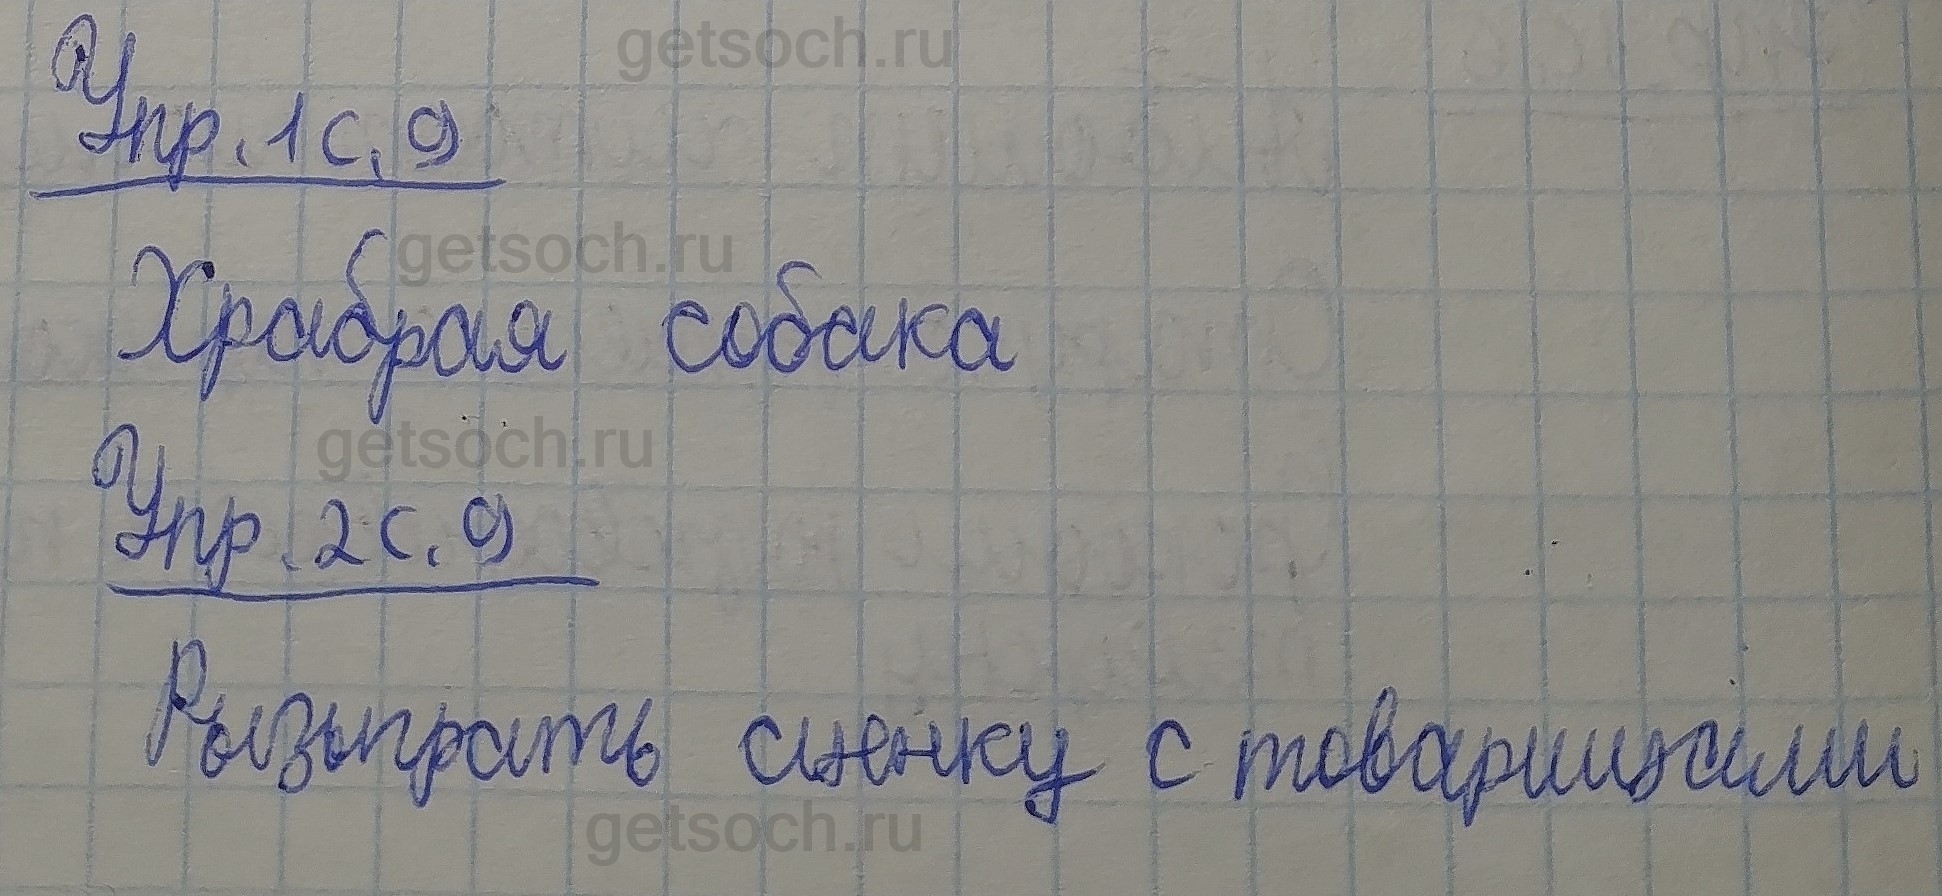 getsoch.ru
Упр. 1 с. 9
getsoch.ru
Храбрая собака
getsoch.ru
Упр. 2 с. 9
Розыграть сценку с товарищами
getsoch.ru